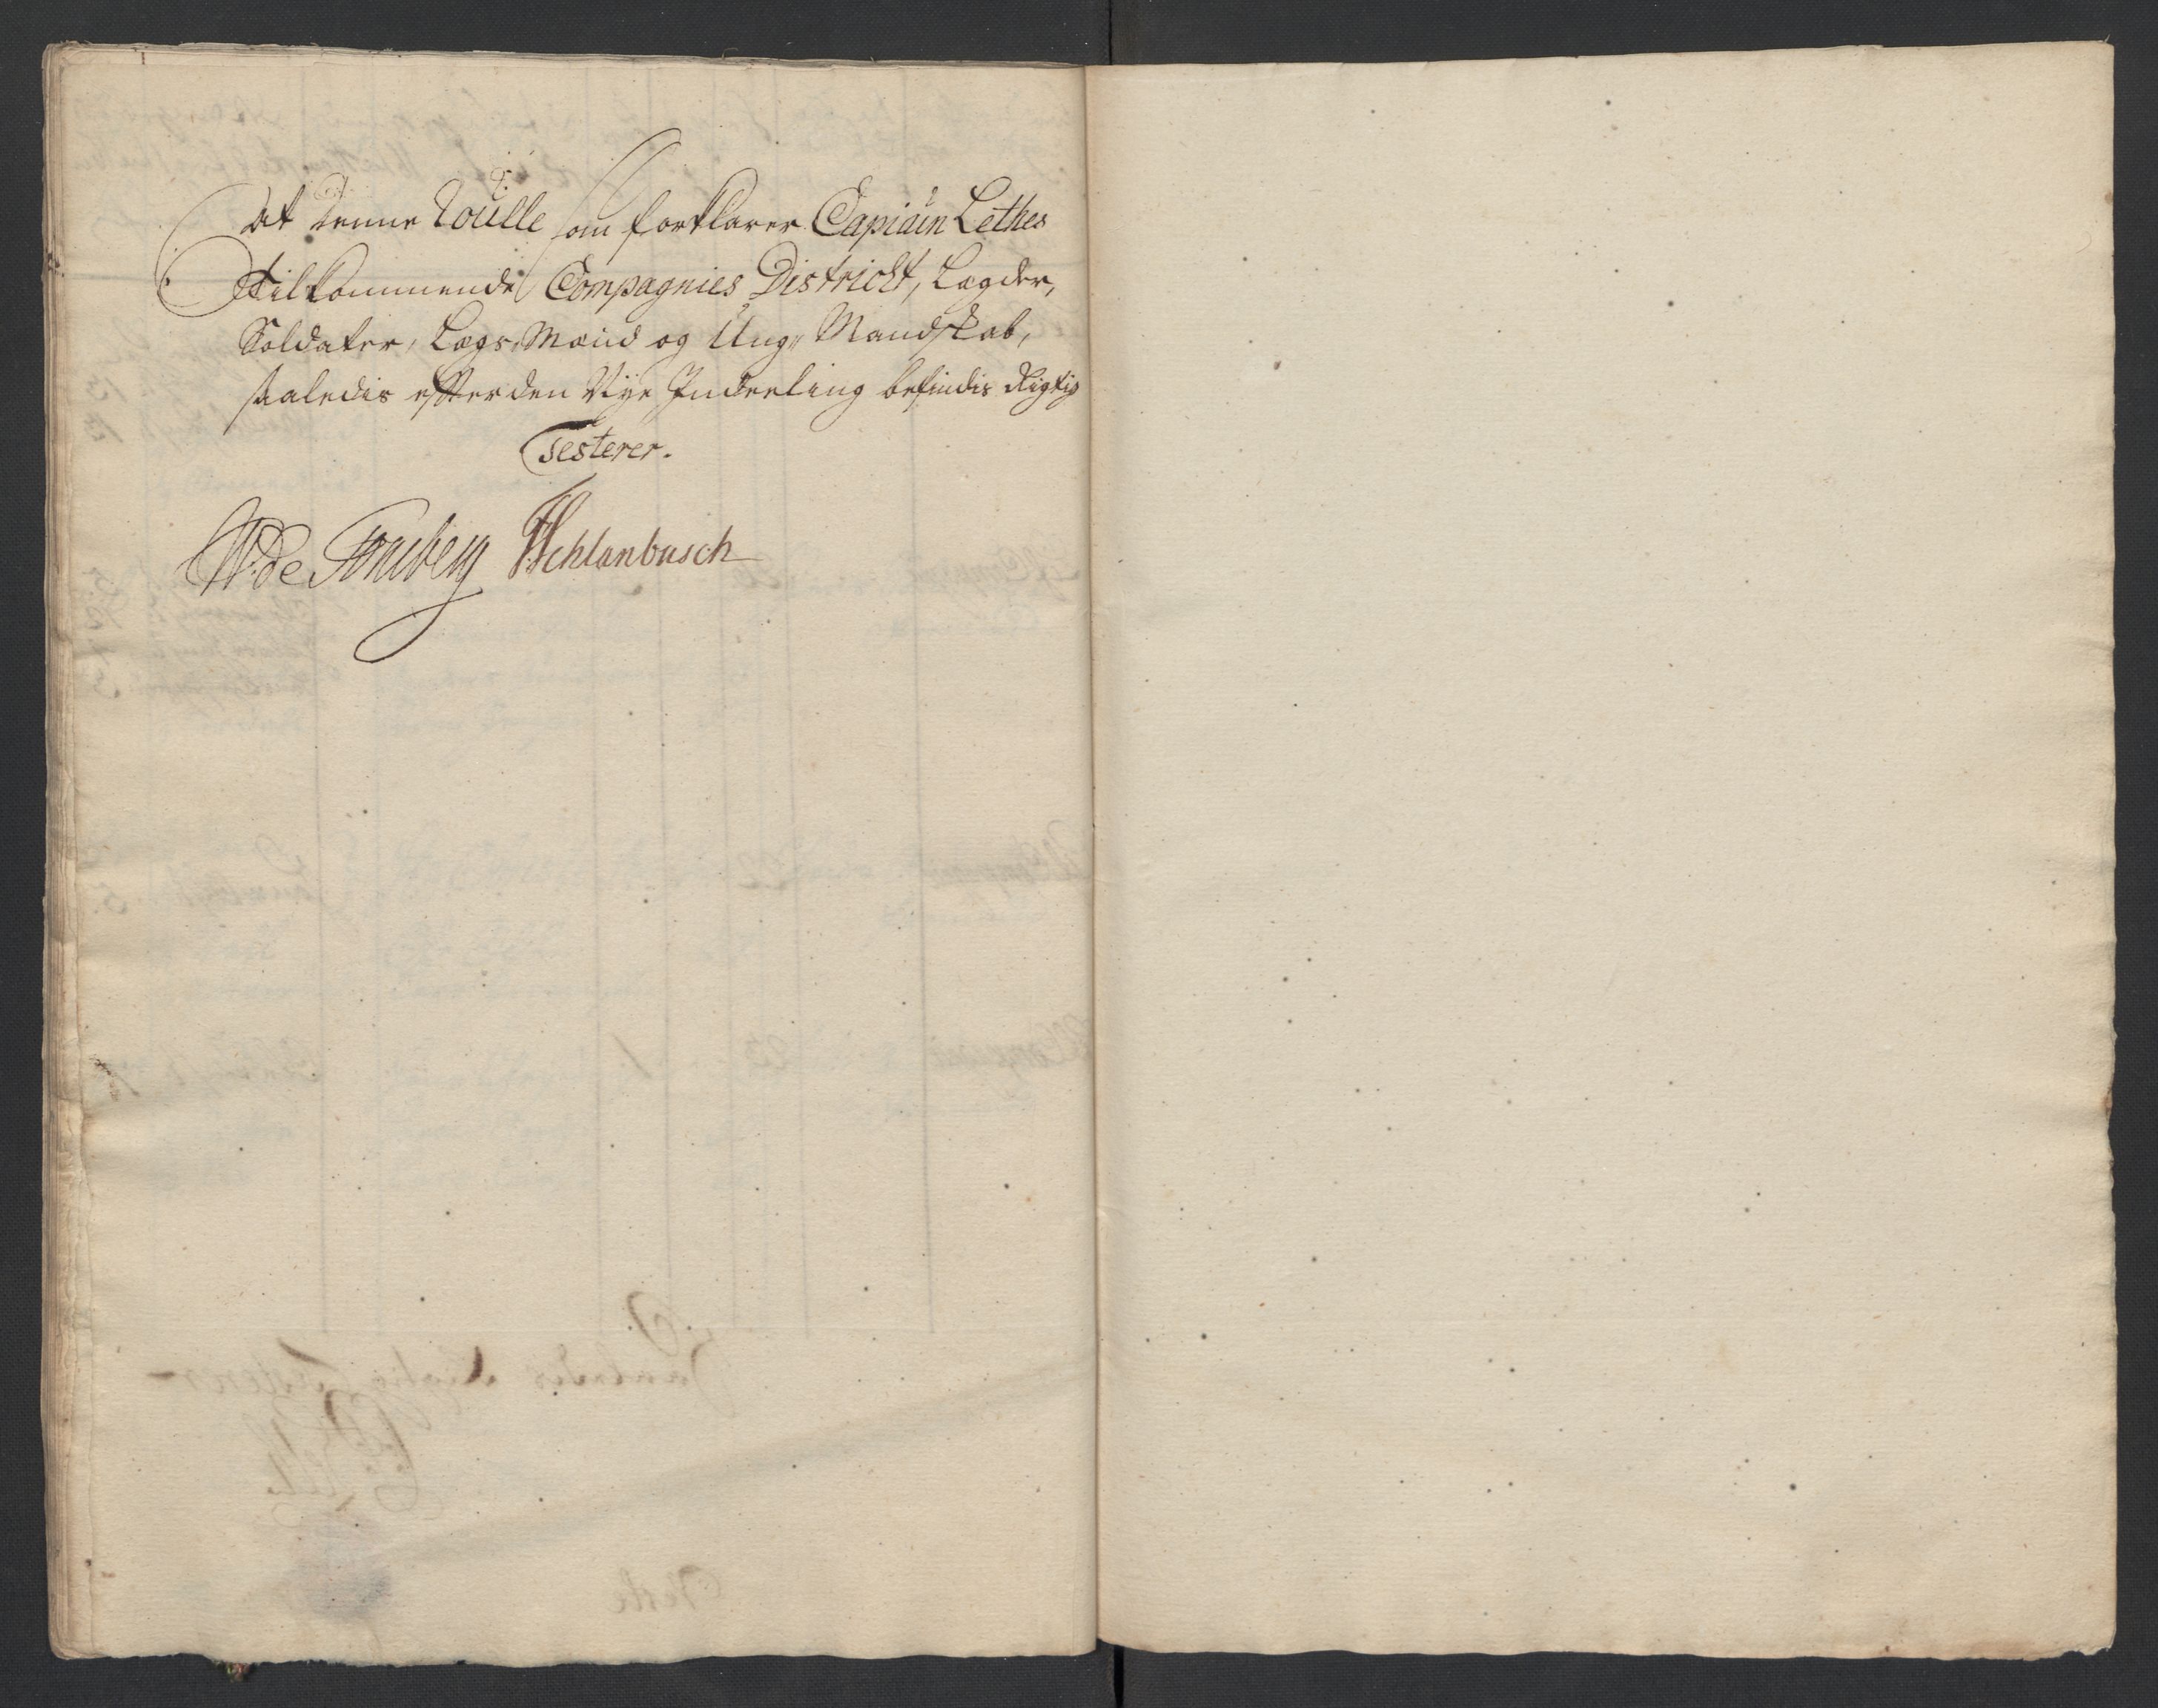 At denne Roulle som forklarer Capiain Lethes
tilkommende Compagnies District, Lægder,
Soldater, Lægs-Mænd og Ung Mandskab,
saaledis efter den Nye Inddeeling befindis Rigtig
Testerer.
W: de Tonsberg Schlanbusch